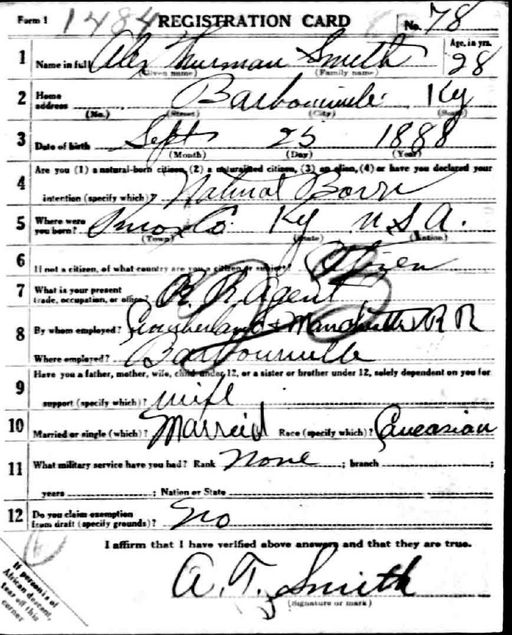 Form 1 1484 REGISTRATION CARD No. 78
1 Name in full Alex Thurman Smith Age, in yrs. 28
(Given name) (Family name)
2 Home address Barbourville Ky
(No.) (Street) (City) (State)
3 Date of birth Sept 25 1888
(Month) (Day) (Year)
Are you (1) a natural-born citizen, (2) a naturalized citizen, (3) an alien, (4) or have you declared your
4 intention (specify which)? Natural Born
5 Where were you born? Knox Co. Ky U.S.A.
(Town) (State) (Nation)
6 If not a citizen, of what country are you a citizen or subject? Citizen
7 What is your present trade, occupation, or office? R. R. Agent
8 By whom employed? Cumberland & Manchester R R
Where employed? Barbourville
Have you a father, mother, wife, child under 12, or a sister or brother under 12, solely dependent on you for
9 support (specify which)? Wife
10 Married or single (which)? Married Race (specify which)? Caucasian
11 What military service have you had? Rank None ; branch ;
years ; Nation or State
12 Do you claim exemption from draft (specify grounds)? No
I affirm that I have verified above answers and that they are true.
A. T. Smith
(Signature or mark)
If person is of
African descent,
tear off this
corner